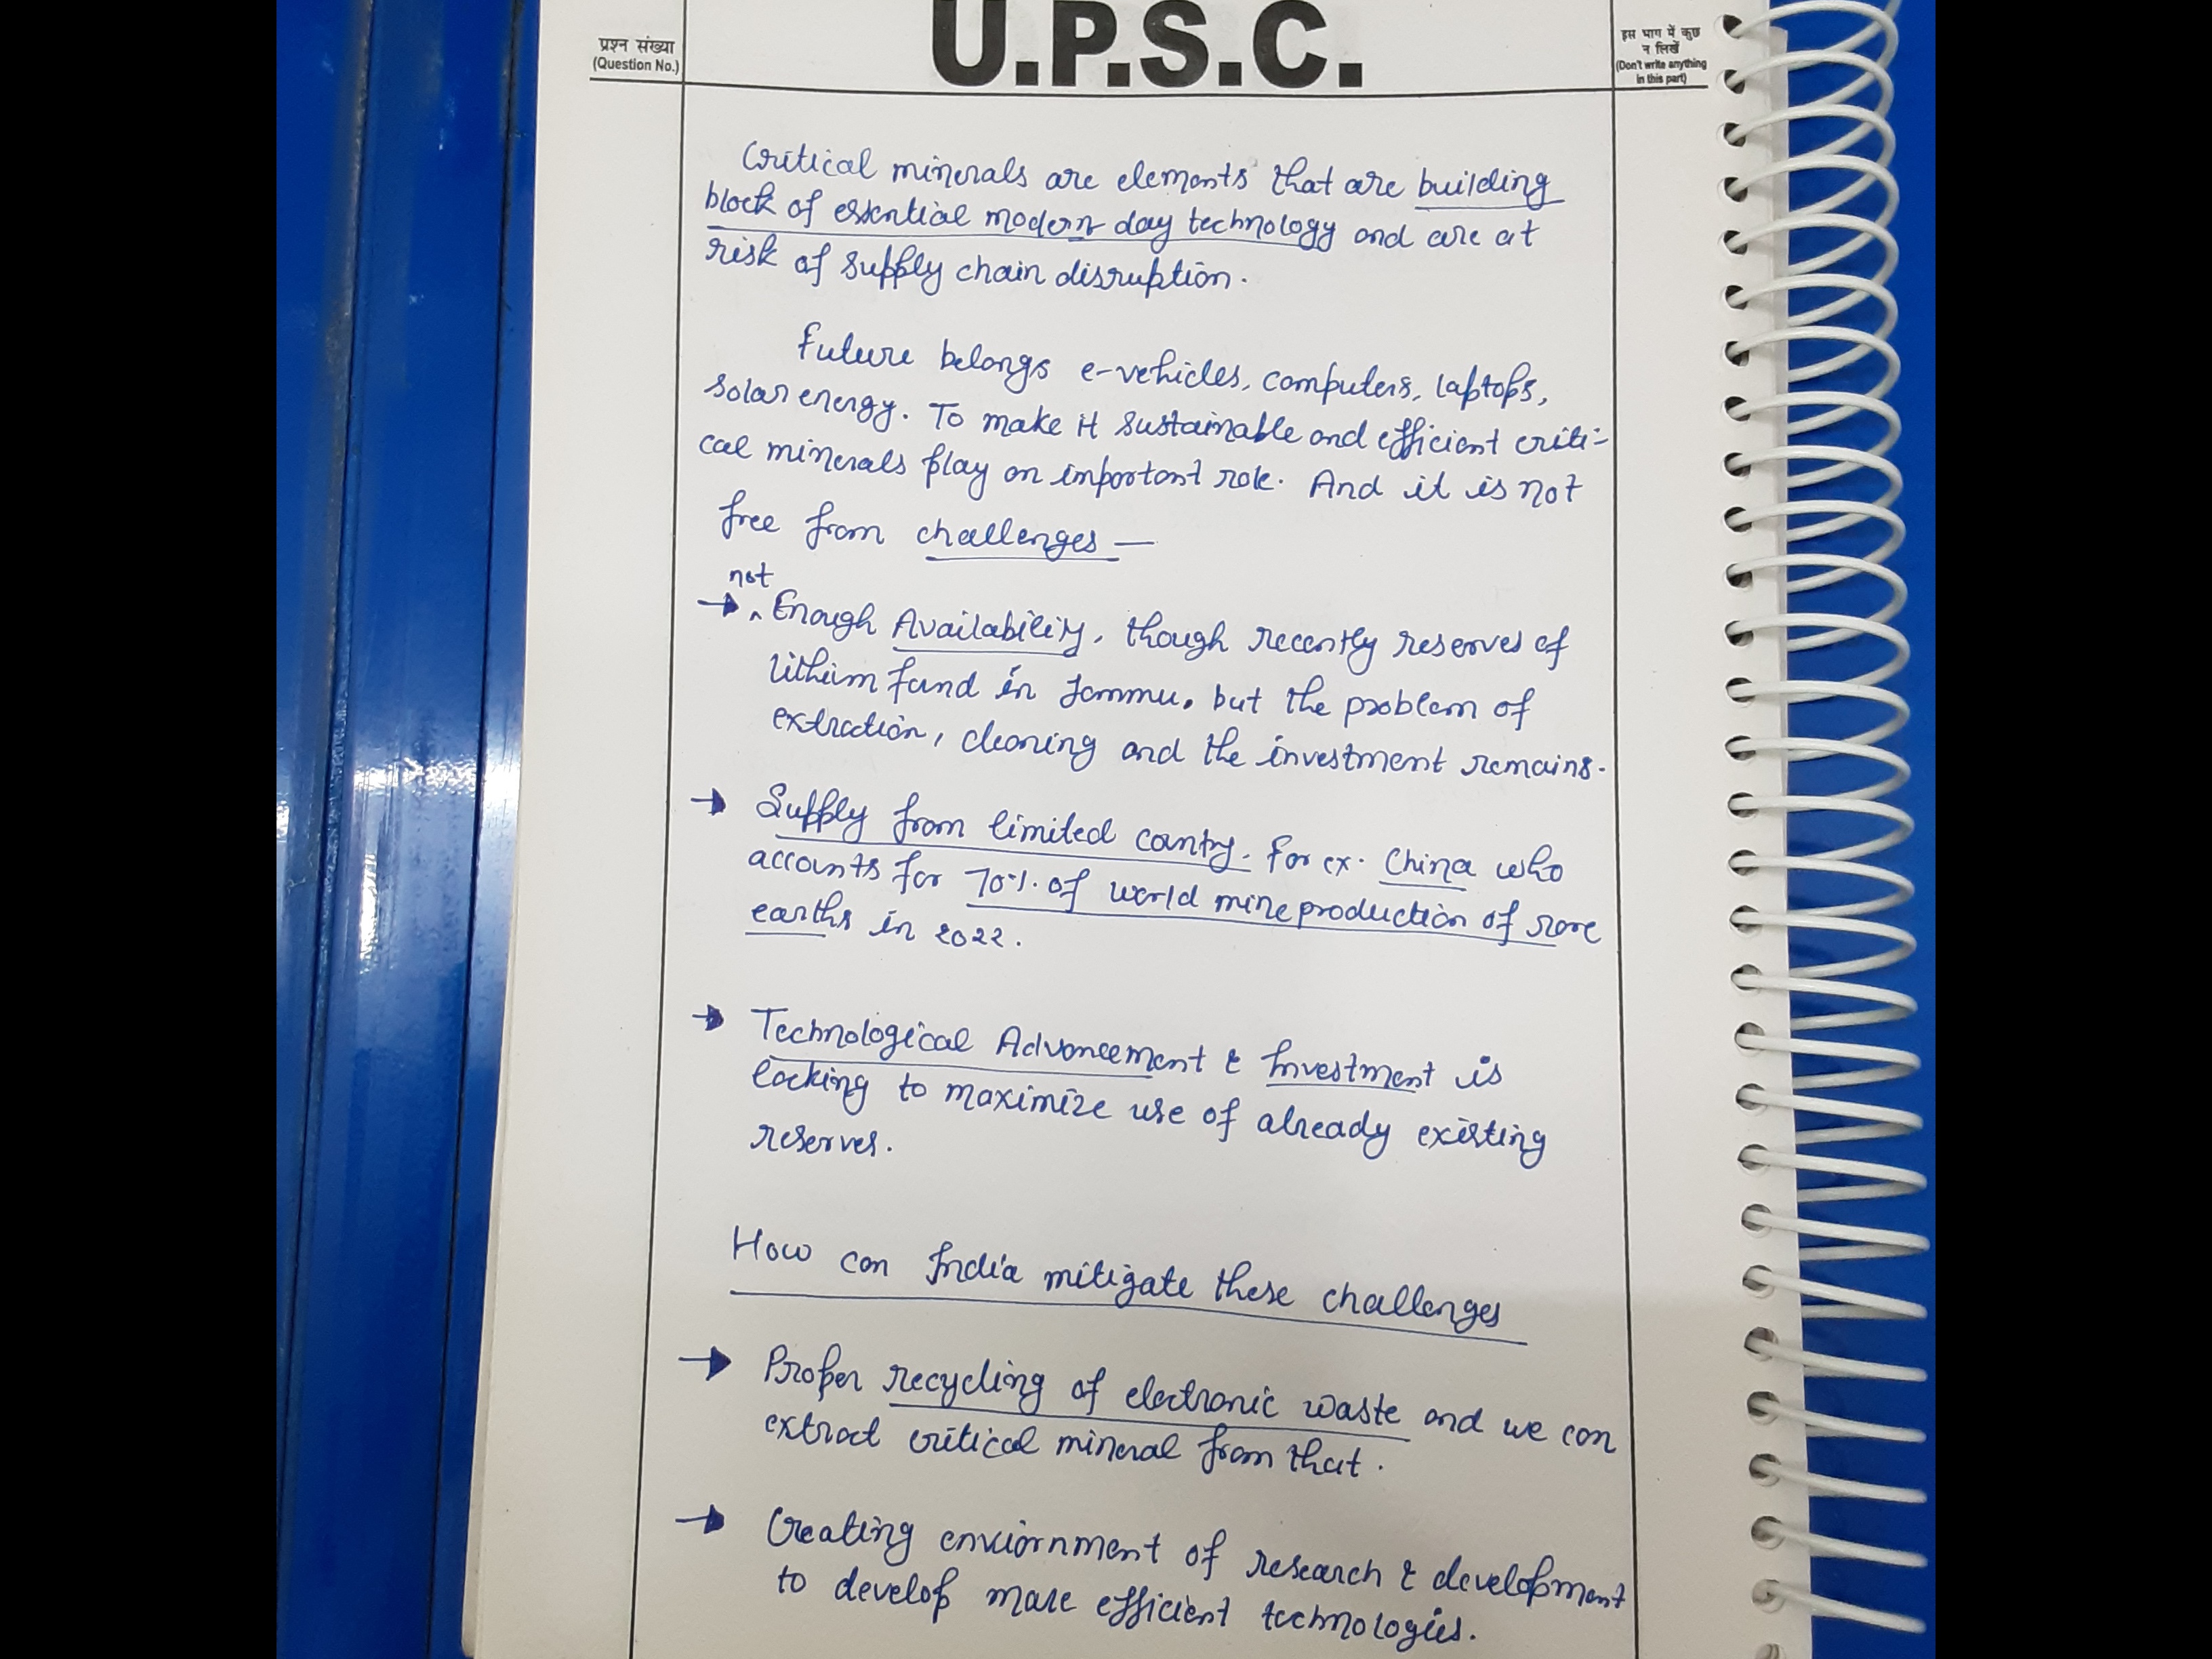 U.P.S.C.
प्रश्न संख्या
(Question No.)
इस भाग में कुछ
न लिखें
(Don't write anything
in this part)
Critical minerals are elements that are building
block of essential modern day technology and are at
risk of supply chain disruption.
Future belongs e-vehicles, computers, laptops,
solar energy. To make it sustainable and efficient criti-
cal minerals play an important role. And it is not
free from challenges —
not
→ ^ Enough Availability, though recently reserves of
lithium fund in Jammu. but the problem of
extraction, cleaning and the investment remains.
→ Supply from limited country. For ex. China who
accounts for 70% of world mine production of rare
earths in 2022.
→ Technological Advancement & Investment is
lacking to maximize use of already existing
reserves.
How can India mitigate these challenges
→ Proper recycling of electronic waste and we can
extract critical mineral from that.
→ Creating enviornment of research & development
to develop more efficient technologies.